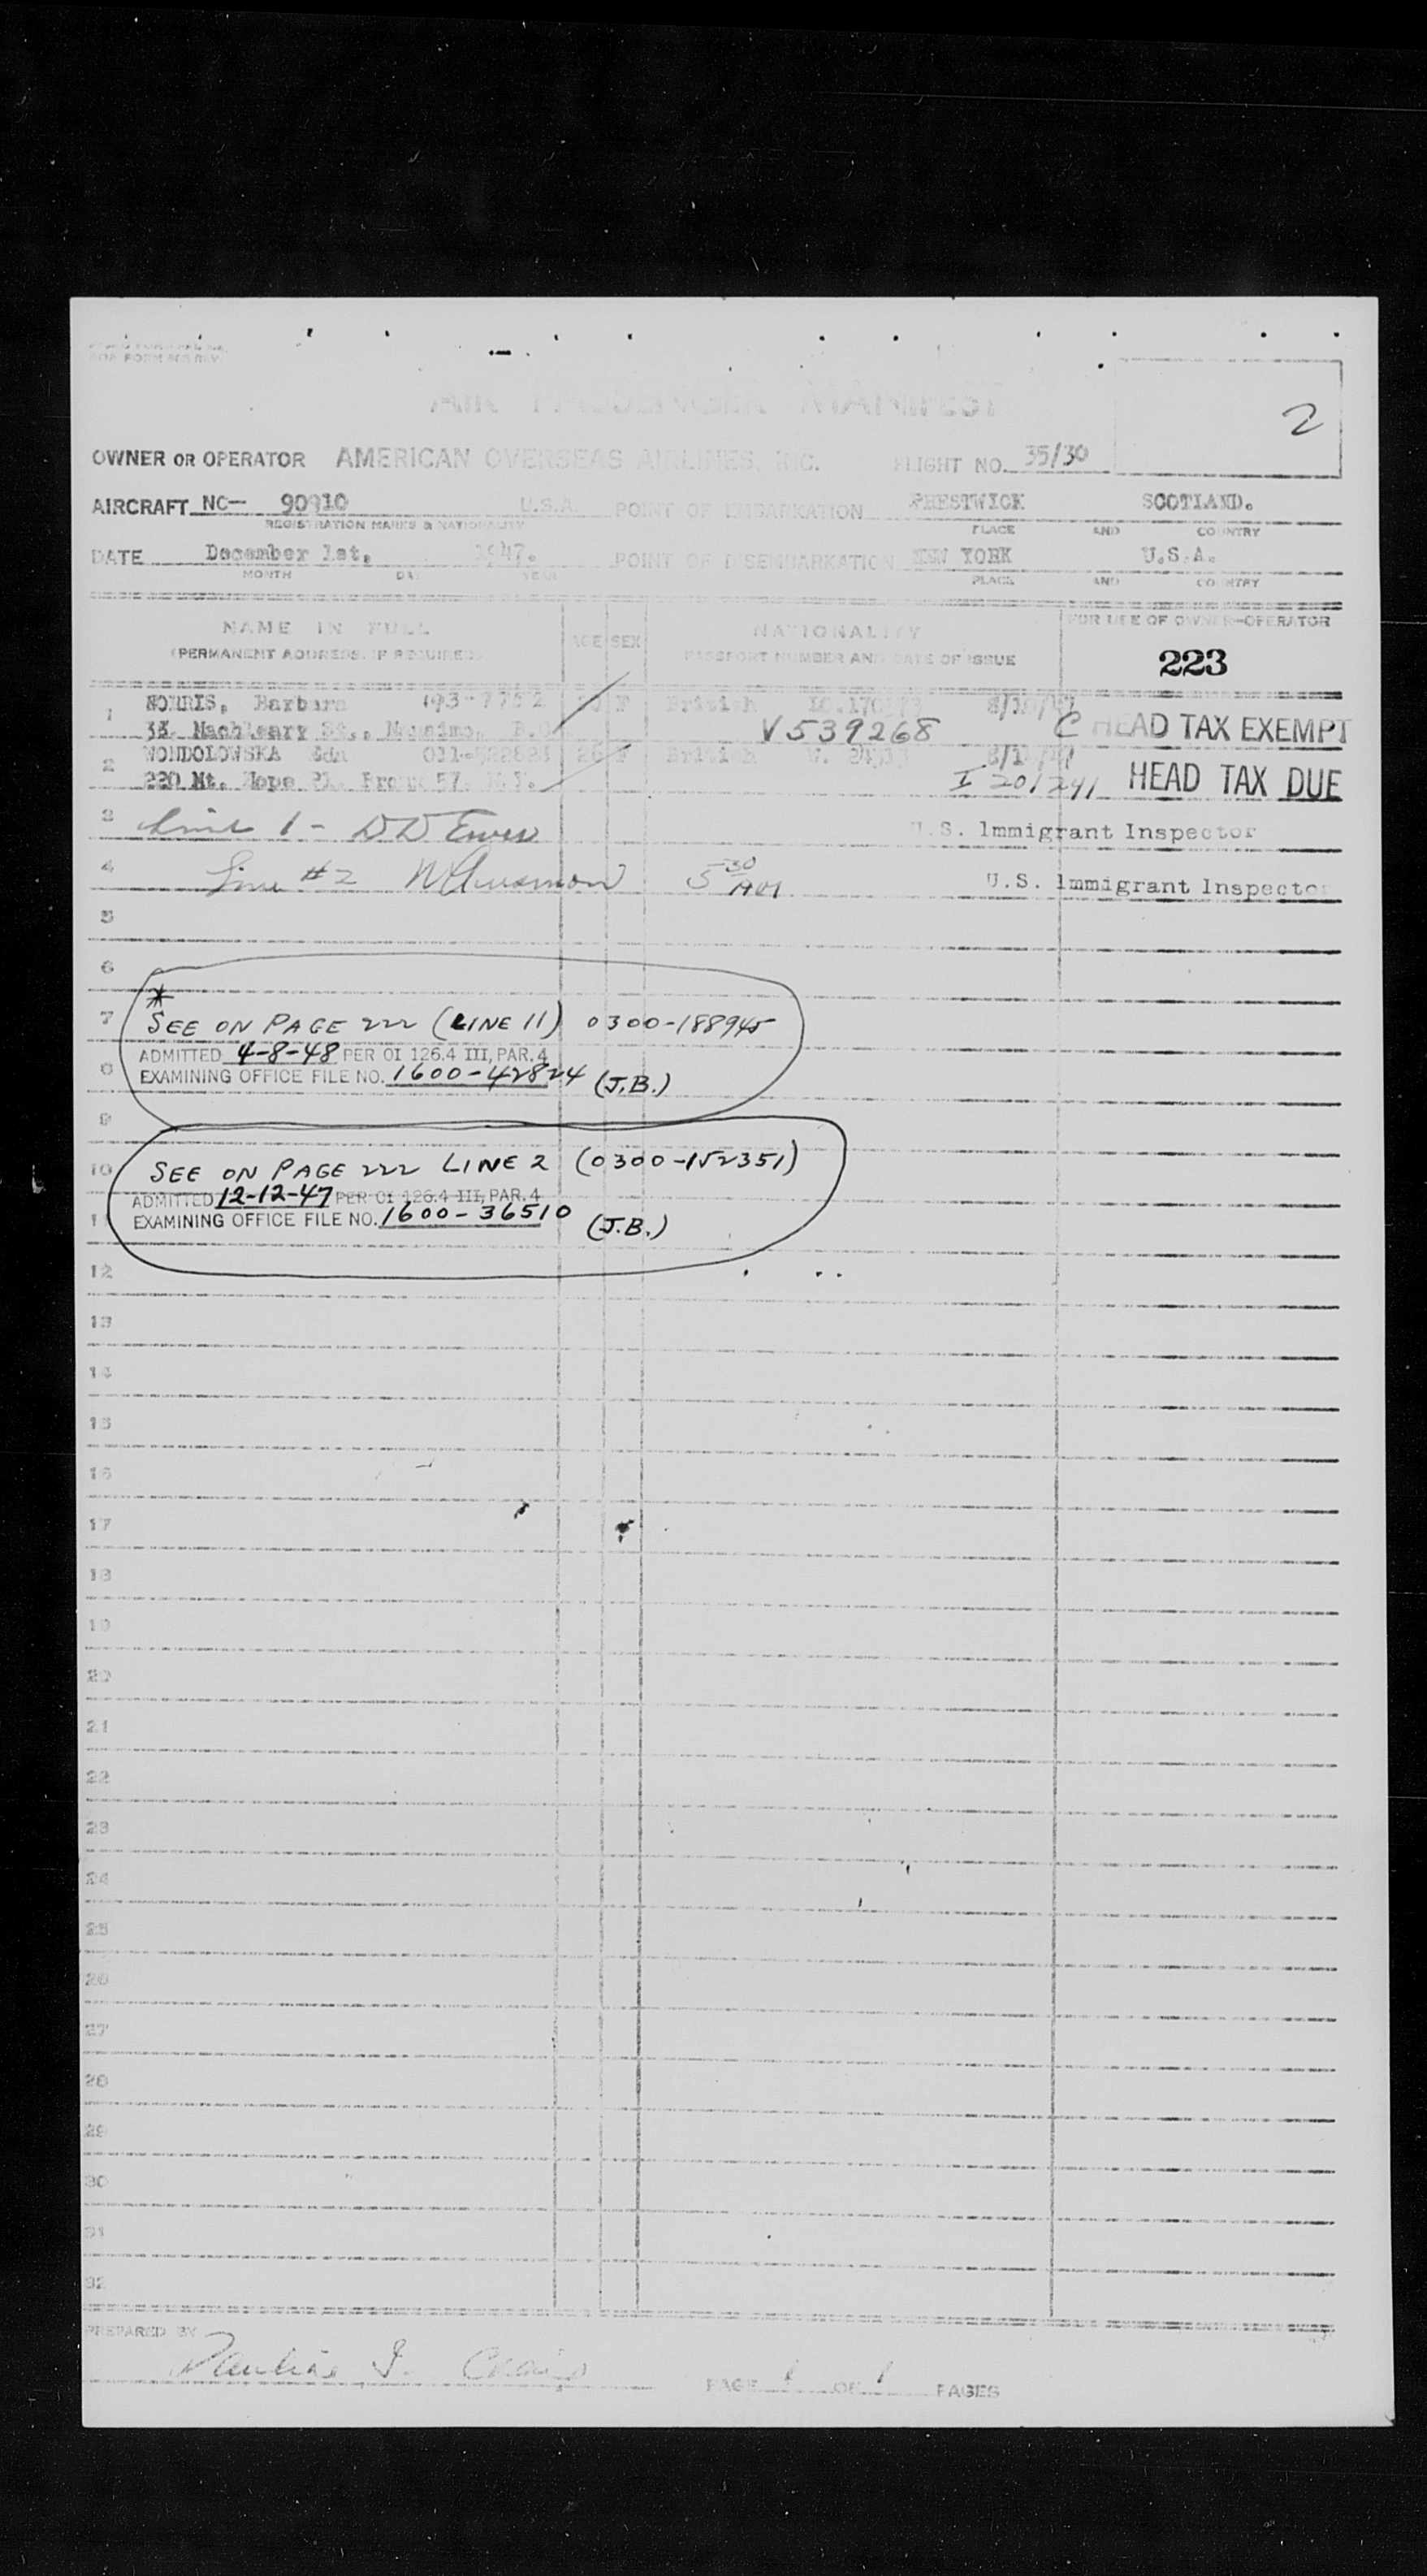 2
AIR PASSENGER MANIFEST
OWNER OR OPERATOR AMERICAN OVERSEAS AIRLINES, INC. FLIGHT NO. 35/30
AIRCRAFT NC— 90910 U.S.A. POINT OF EMBARKATION PRESTWICK SCOTLAND.
REGISTRATION MARKS & NATIONALITY PLACE AND COUNTRY
DATE December 1st, 1947. POINT OF DISEMBARKATION NEW YORK U.S.A.
MONTH DAY YEAR PLACE AND COUNTRY
NAME IN FULL AGE SEX NATIONALITY FOR USE OF OWNER-OPERATOR
(PERMANENT ADDRESS, IF REQUIRED) PASSPORT NUMBER AND DATE OF ISSUE 223
1 NORRIS, Barbara F British
33 Machleary St., Nanaimo, B.C V539268 C HEAD TAX EXEMPT
2 WONDOLOWSKA 26 F British
220 Mt. Hope Pl. Bronx 57, N.Y. I 201241 HEAD TAX DUE
3 Line 1 - U.S. Immigrant Inspector
4 Line #2 5 30 AM U.S. Immigrant Inspector
5
6
*
7 SEE ON PAGE 222 (LINE 11) 0300-188945
ADMITTED 4-8-48 PER OI 126.4 III, PAR. 4
8 EXAMINING OFFICE FILE NO. 1600-42824 (J.B.)
9
10 SEE ON PAGE 222 LINE 2 (0300-152351)
ADMITTED 12-12-47 PER OI 126.4 III, PAR. 4
11 EXAMINING OFFICE FILE NO. 1600-36510 (J.B.)
12
13
14
15
16
17
18
19
20
21
22
23
24
25
26
27
28
29
30
31
32
PREPARED BY
PAGE 1 OF 1 PAGES